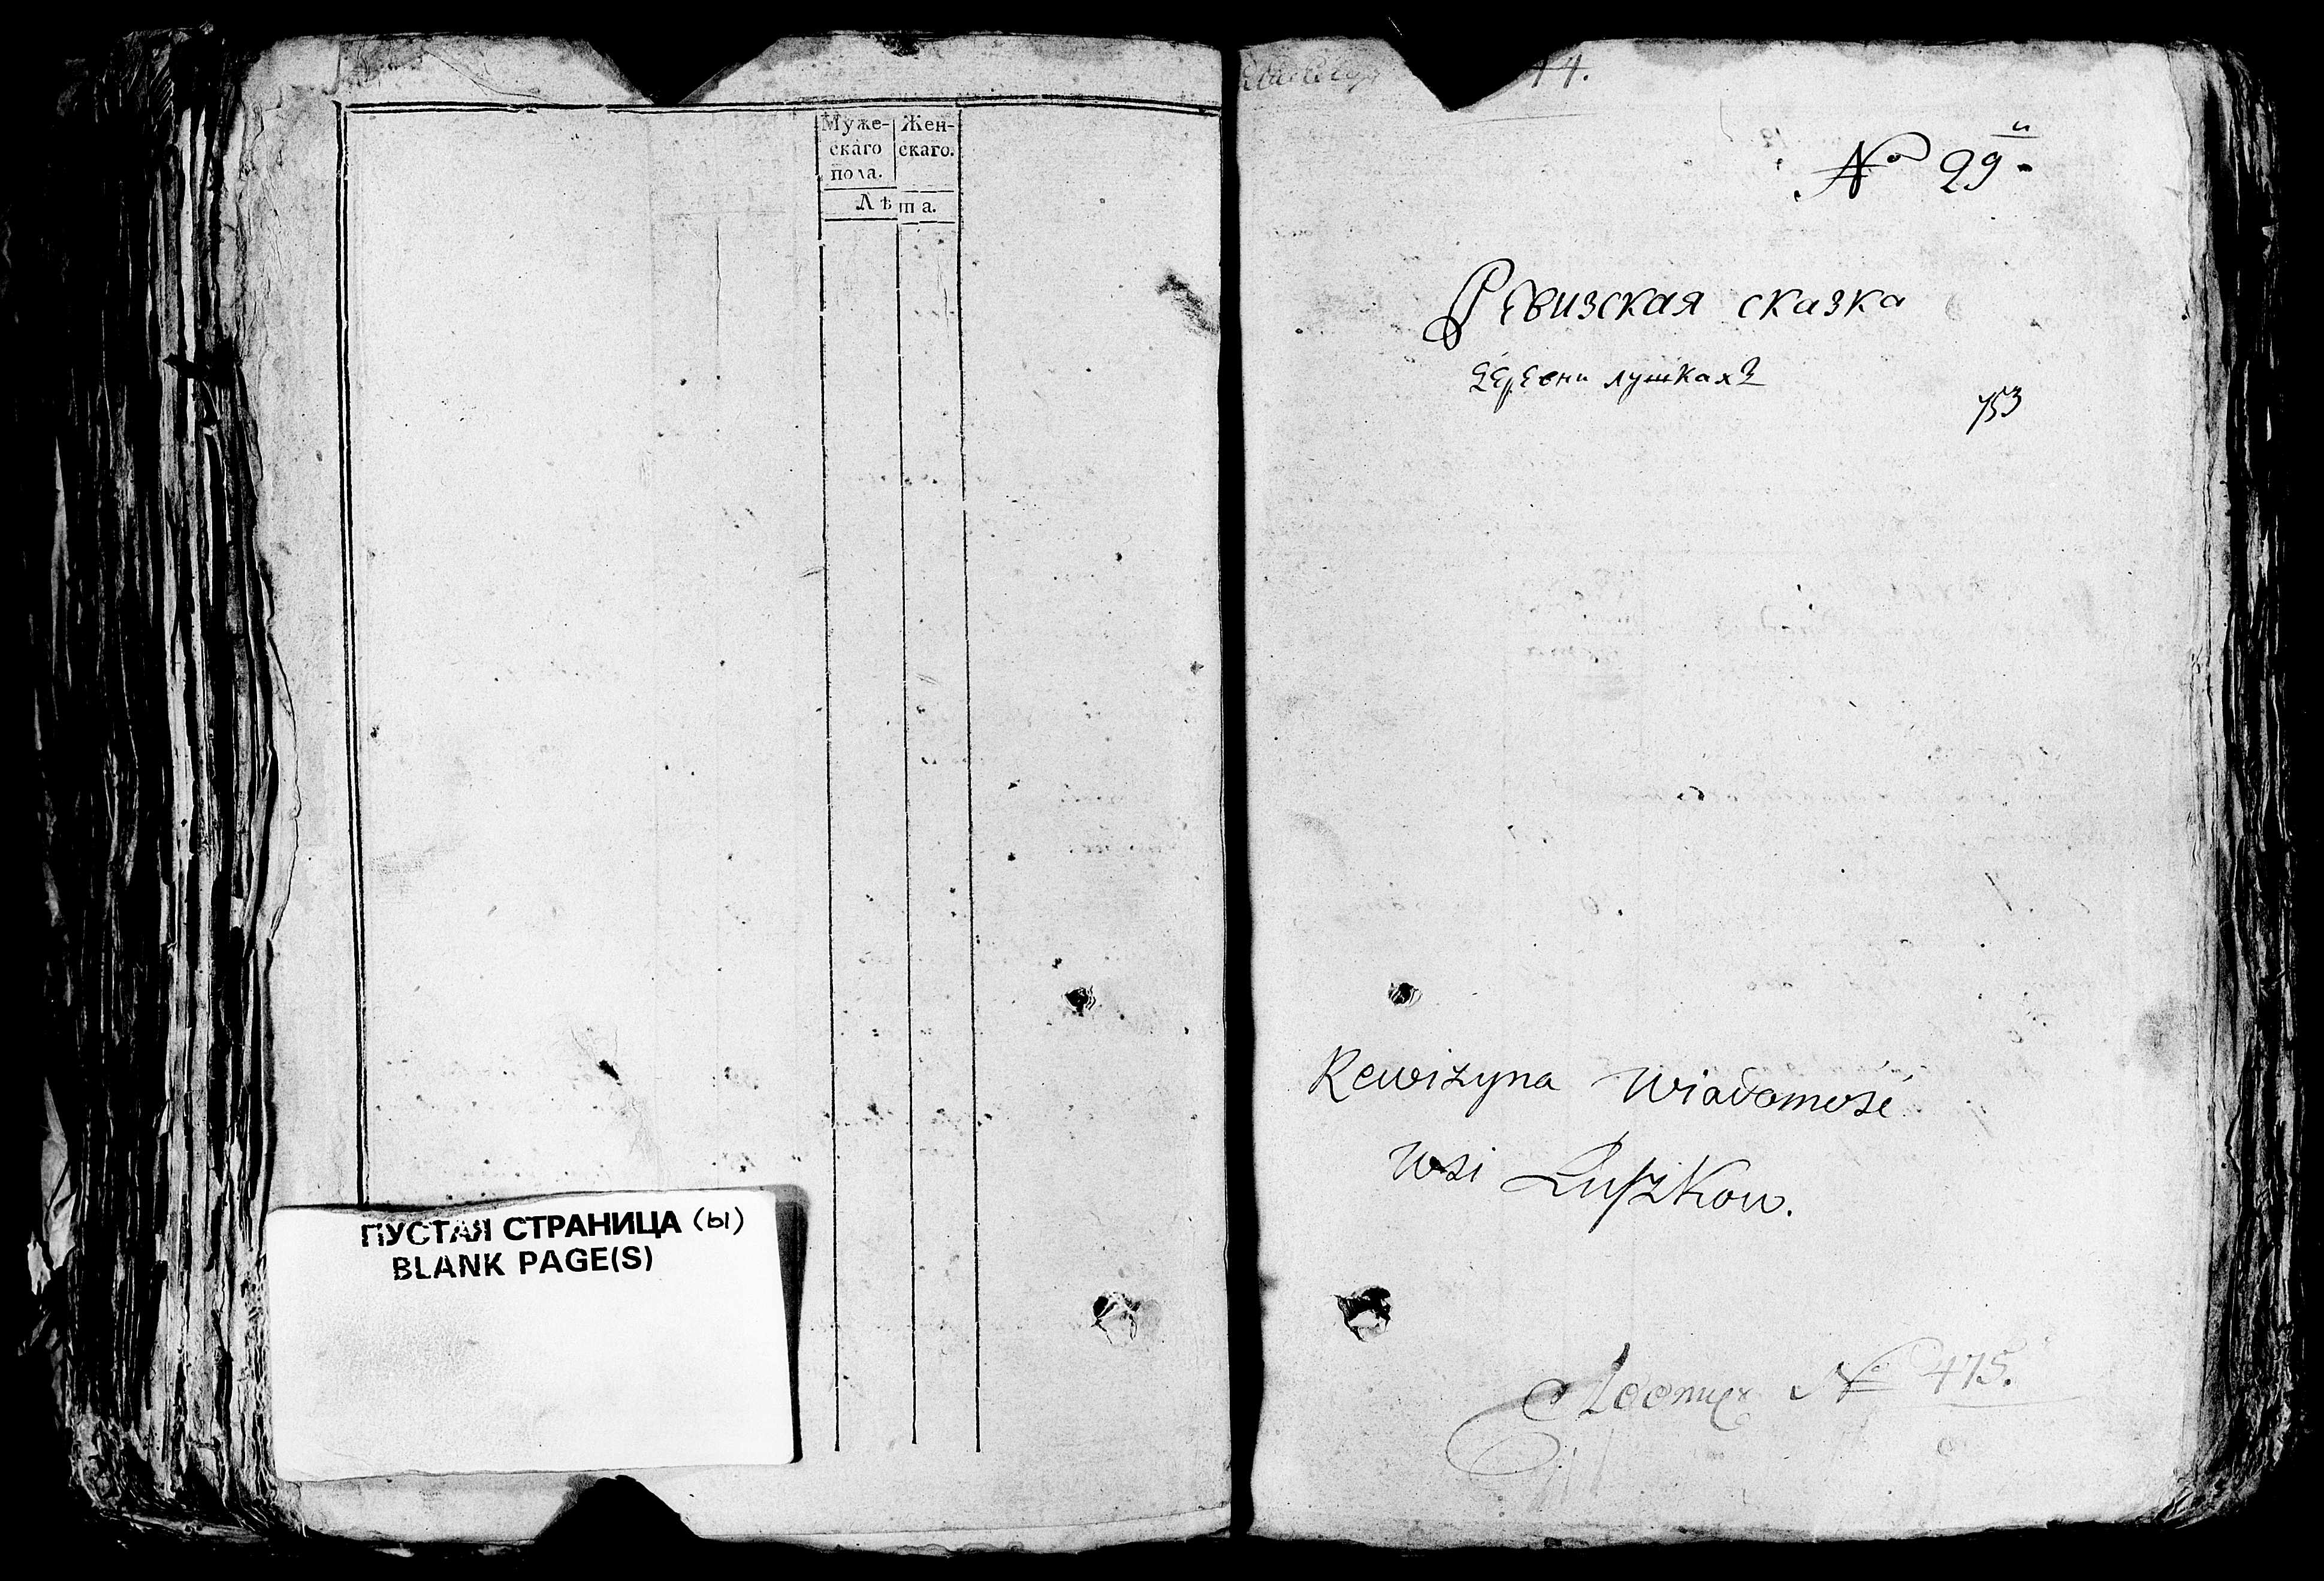 Муже-
скаго
пола.
Жен-
скаго.
Лѣта.
ПУСТАЯ СТРАНИЦА (Ы)
BLANK PAGE(S)
№ 29й
Ревизская сказка
деревни лушках
753
Rewizyna Wiadomość
Wsi Luszkow.
№ 475.